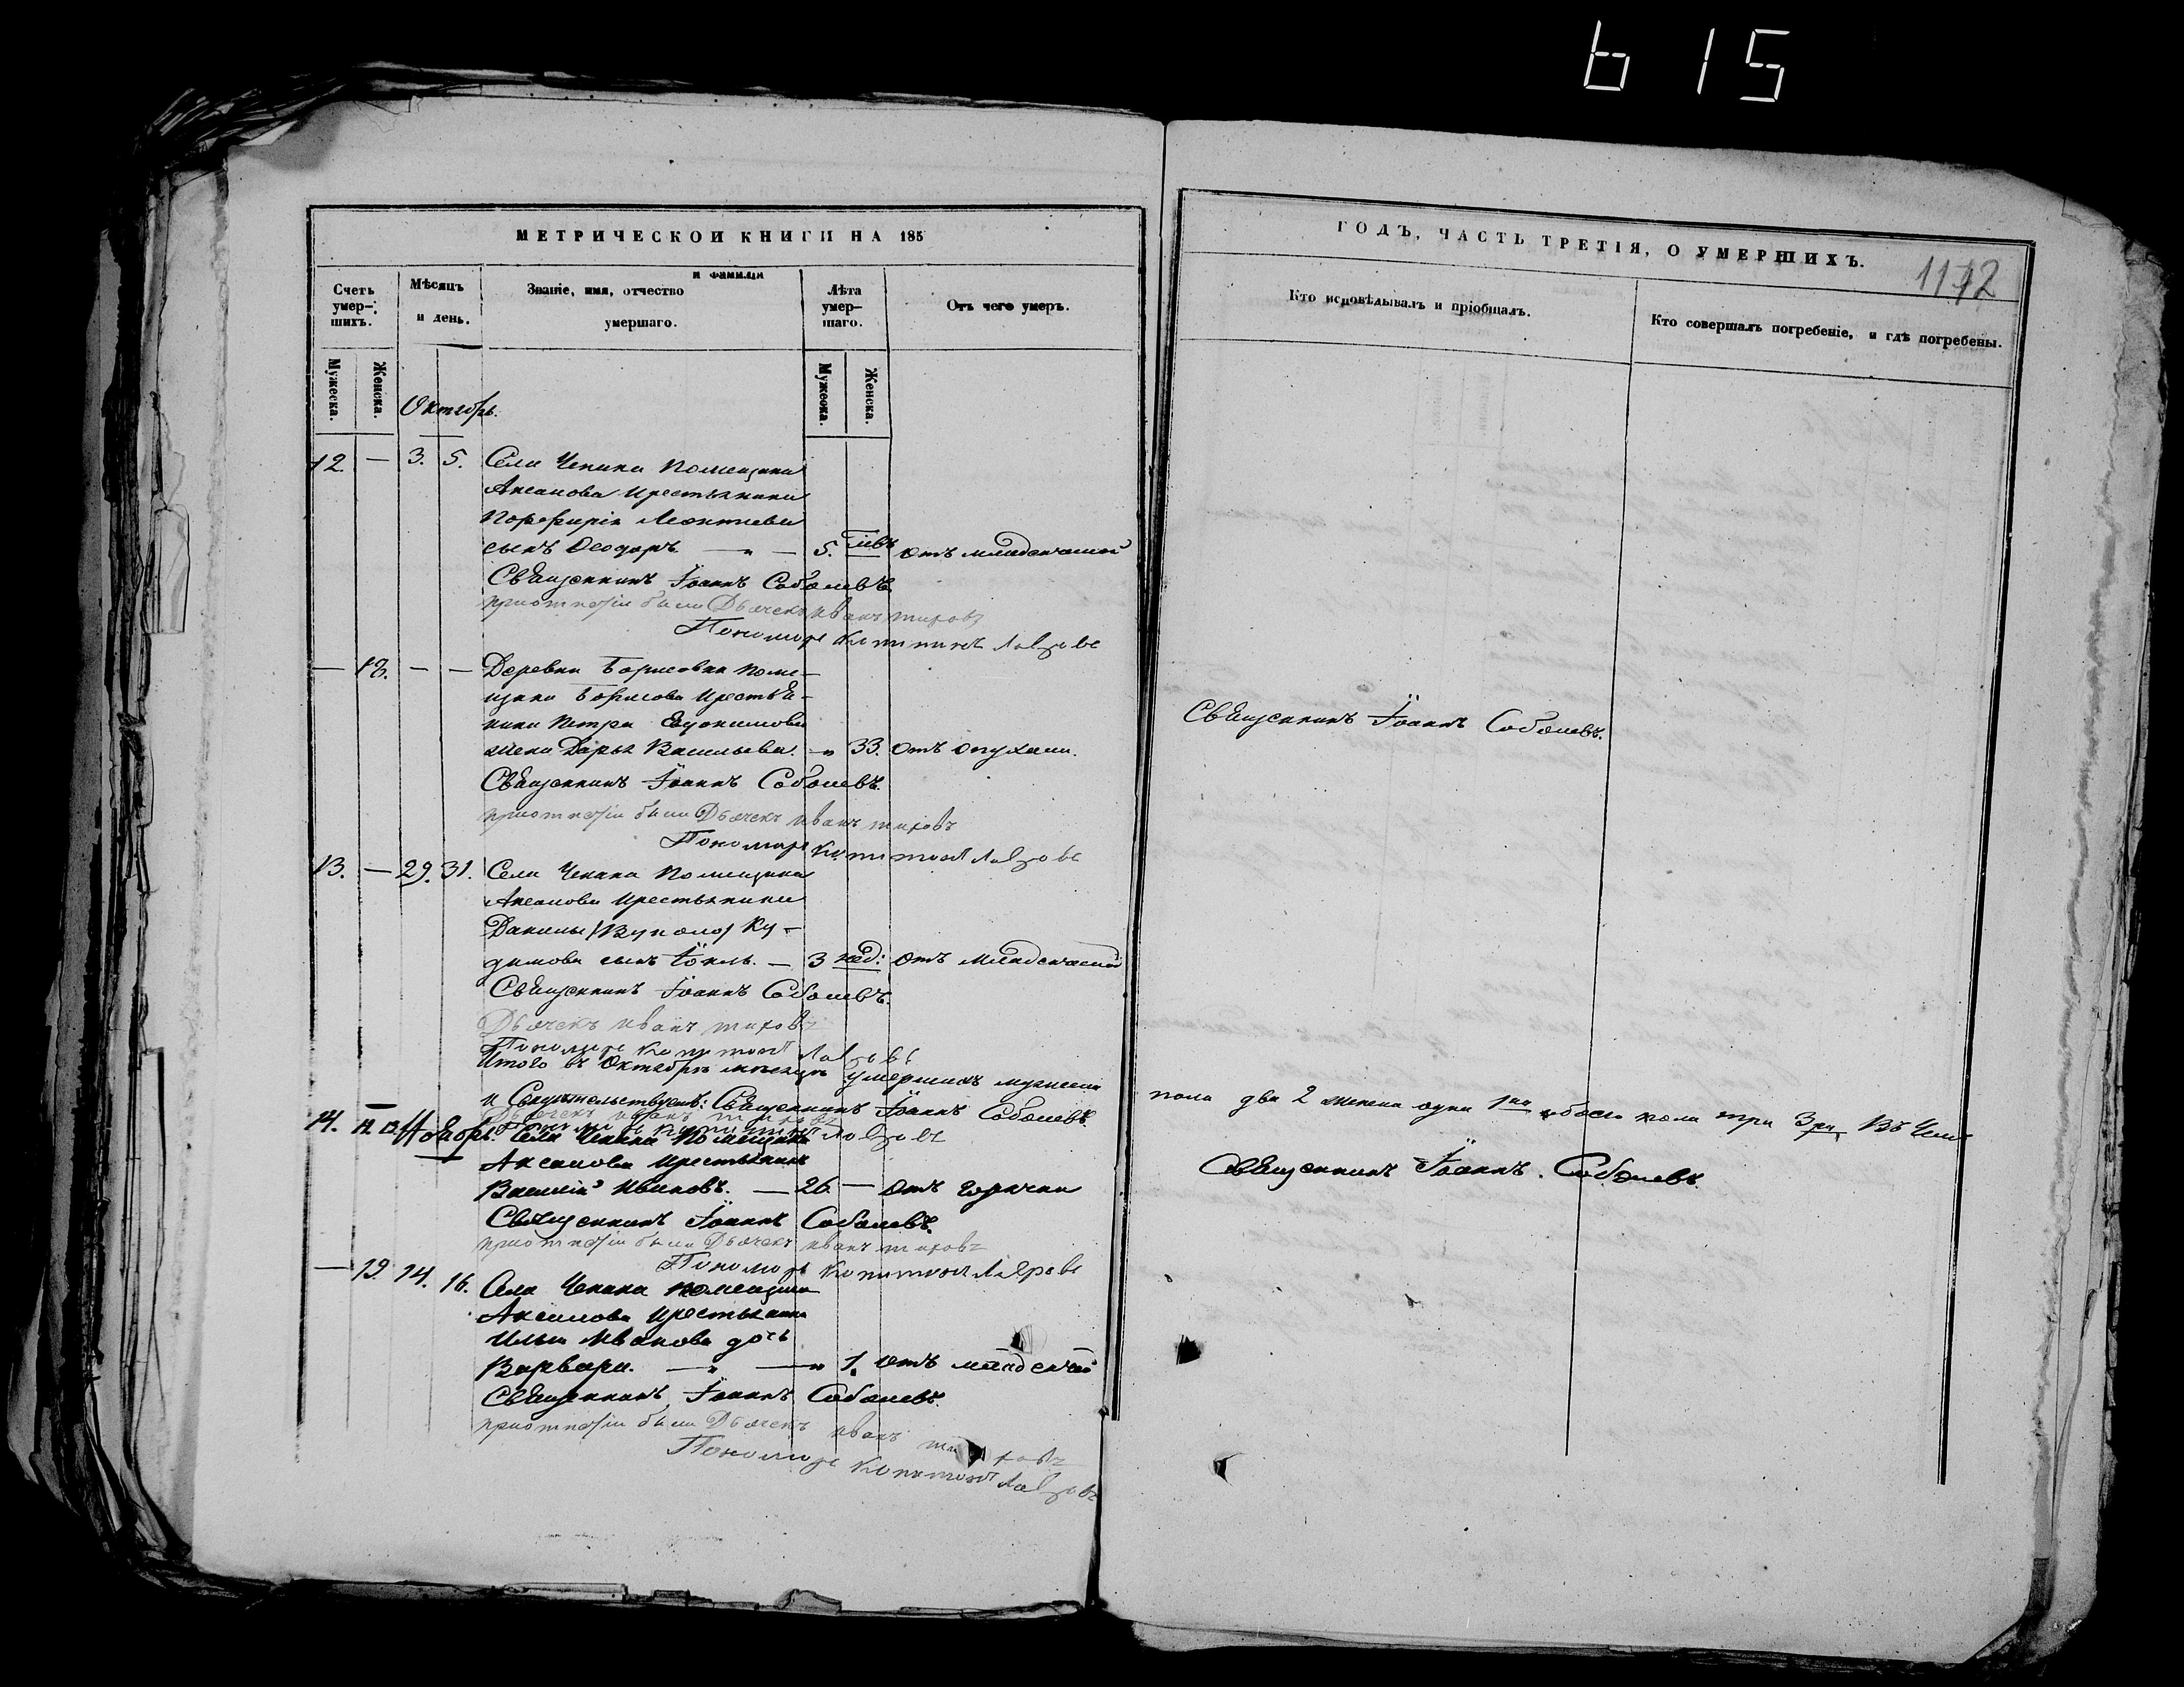 615
МЕТРИЧЕСКОЙ КНИГИ НА 185
ГОДЪ, ЧАСТЬ ТРЕТІЯ, О УМЕРШИХЪ.
1172
Счетъ умер-шихъ.
Мѣсяцъ и день.
Званіе, имя, отчество и фамилія умершаго.
Лѣта умер-шаго.
Отъ чего умеръ.
Кто исповѣдывалъ и пріобщалъ.
Кто совершалъ погребеніе, и гдѣ погребены.
Мужеска.
Женска.
Мужеска.
Женска.
Октябрь.
12 — 3. 5. Села Чекана Помещика
Аксакова крестьянина
Порфирія Леонтиева
сынъ Ѳеодоръ — „ — 5. отъ младенческой
Священникъ Іоаннъ Соболевъ
при отпетіи были Дьячекъ Иванъ
Пономарь Капитонъ Лавровъ
— 18. — — Деревни Борисовки поме-
щика Борисова крестья-
нина Петра Евдокимова
жена Дарья Васильева. „ 33. отъ опухоли.
Священникъ Іоаннъ Соболевъ.
Священникъ Іоаннъ Соболевъ.
при отпетіи были Дьячекъ Иванъ
Пономарь Капитонъ Лавровъ
13. — 29. 31. Села Чекана Помещика
Аксакова крестьянина
Данилы /Вукола/ Ку-
димова сынъ — 3 нед: отъ младенческой
Священникъ Іоаннъ Соболевъ.
Дьячекъ Иванъ
Пономарь Капитонъ Лавровъ
Итого въ Октябрѣ месяцѣ умершихъ мужеска
пола два 2 женска одна 1на обоего пола три 3ри. Въ чемъ
и Свидѣтельствуемъ: Священникъ Іоаннъ Соболевъ.
Дьячекъ Иванъ
Пономарь Капитонъ Лавровъ
14. Ноябрь. Села Чекана Помещика
Аксакова крестьянинъ
Василій Ивановъ. — 26 — отъ горячки
Священникъ Іоаннъ Соболевъ.
Священникъ Іоаннъ Соболевъ.
при отпетіи были Дьячекъ Иванъ
Пономарь Капитонъ Лавровъ
— 19. 14. 16. Села Чекана помещика
Аксакова крестьянина
Ильи Иванова дочь
Варвара. — „ — „ 1. отъ младенчей
Священникъ Іоаннъ Соболевъ.
при отпетіи были Дьячекъ Иванъ
Пономарь Капитонъ Лавровъ